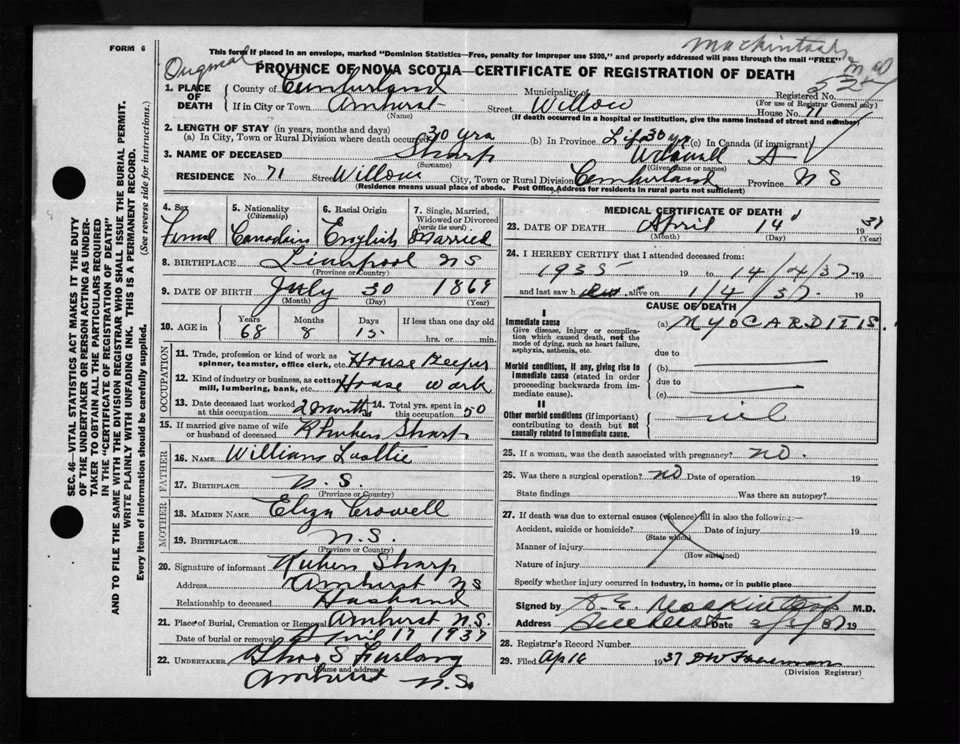 Mackintosh
FORM 6
This form if placed in an envelope, marked "Dominion Statistics—Free, penalty for improper use $300," and properly addressed will pass through the mail "FREE"
Original
PROVINCE OF NOVA SCOTIA—CERTIFICATE OF REGISTRATION OF DEATH
1. PLACE OF DEATH County of Cumberland Municipality of Registered No.
(For use of Registrar General only)
If in City or Town Amherst Street Willow House No. 71
(Name) (If death occurred in a hospital or institution, give the name instead of street and number)
2. LENGTH OF STAY (in years, months and days)
(a) In City, Town or Rural Division where death occurred 30 yrs (b) In Province Life 30 yr (c) In Canada (if immigrant)
3. NAME OF DECEASED Sharp A
(Surname) (Given name or names)
RESIDENCE No. 71 Street Willow City, Town or Rural Division Cumberland Province N S
(Residence means usual place of abode. Post Office Address for residents in rural parts not sufficient)
SEC. 46—VITAL STATISTICS ACT MAKES IT THE DUTY
OF THE UNDERTAKER OR PERSON ACTING AS UNDER-
TAKER TO OBTAIN ALL THE PARTICULARS REQUIRED
IN THE "CERTIFICATE OF REGISTRATION OF DEATH"
AND TO FILE THE SAME WITH THE DIVISION REGISTRAR WHO SHALL ISSUE THE BURIAL PERMIT.
WRITE PLAINLY WITH UNFADING INK. THIS IS A PERMANENT RECORD.
Every item of information should be carefully supplied. (See reverse side for instructions.)
4. Sex 5. Nationality (Citizenship) 6. Racial Origin 7. Single, Married, Widowed or Divorced (write the word)
Femal Canadian English Married
8. BIRTHPLACE Liverpool N S
(Province or Country)
9. DATE OF BIRTH July 30 1869
(Month) (Day) (Year)
10. AGE in Years Months Days If less than one day old
68 8 15 hrs. or min.
OCCUPATION
11. Trade, profession or kind of work as spinner, teamster, office clerk, etc. House Keeper
12. Kind of industry or business, as cotton mill, lumbering, bank, etc. House work
13. Date deceased last worked at this occupation 2 months 14. Total yrs. spent in this occupation 50
15. If married give name of wife or husband of deceased Sharp
FATHER
16. NAME William
17. BIRTHPLACE N. S.
(Province or Country)
MOTHER
18. MAIDEN NAME Eliza Crowell
19. BIRTHPLACE N. S.
(Province or Country)
20. Signature of informant Sharp
Address Amherst N S
Relationship to deceased Husband
21. Place of Burial, Cremation or Removal Amherst N.S.
Date of burial or removal April 17 1937
22. UNDERTAKER S Furlong
(Name and address)
Amherst N. S.
MEDICAL CERTIFICATE OF DEATH
23. DATE OF DEATH April 14 1937
(Month) (Day) (Year)
24. I HEREBY CERTIFY that I attended deceased from:
1935 19 to 14/4/37 19
and last saw h er alive on 1/4/37 19
CAUSE OF DEATH
I
Immediate cause (a) MYOCARDITIS.
Give disease, injury or complica-
tion which caused death, not the
mode of dying, such as heart failure,
asphyxia, asthenia, etc. due to
Morbid conditions, if any, giving rise to (b)
immediate cause (stated in order due to
proceeding backwards from im-
mediate cause). (c)
II
Other morbid conditions (if important) nil
contributing to death but not
causally related to immediate cause.
25. If a woman, was the death associated with pregnancy? no.
26. Was there a surgical operation? no Date of operation 19
State findings Was there an autopsy?
27. If death was due to external causes (violence) fill in also the following:—
Accident, suicide or homicide? Date of injury 19
(State which)
Manner of injury
(How sustained)
Nature of injury
Specify whether injury occurred in industry, in home, or in public place
Signed by M.D.
Address Amherst Date 19
28. Registrar's Record Number
29. Filed Ap 16 1937
(Division Registrar)